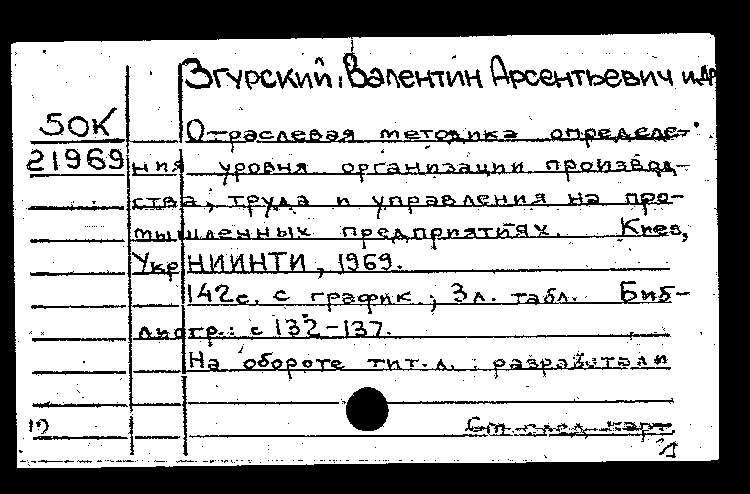 Згурский, Валентин Арсентьевич и др
50К
Отраслевая методика определе-
21969 ния уровня организации производ-
ства, труда и управления на про-
мышленных предприятиях. Киев,
УкрНИИНТИ, 1969.
142с. с график.; 3л. табл. Биб-
лиогр.: с 132-137.
На обороте тит.л.: разработали
См. след. карт.